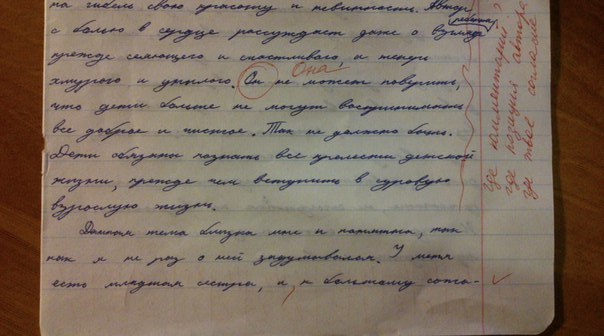 на гибель свою красоту и невинность. Автор
с болью в сердце рассуждает даже о взгляде
ребёнка,
прежде сияющего и счастливого и теперь
хмурого и унылого. Он не может поверить,
Она!
что дети больше не могут воспринимать
все доброе и чистое. Так не должно быть.
Дети обязаны познать все прелести детской
жизни, прежде чем вступить в суровую
взрослую жизнь.
Данная тема близка мне и понятна, так
как я не раз о ней задумывался. У меня
есть младшая сестра, и, к большому сожа-
где комментарий?
где позиция автора,
где твое согласие